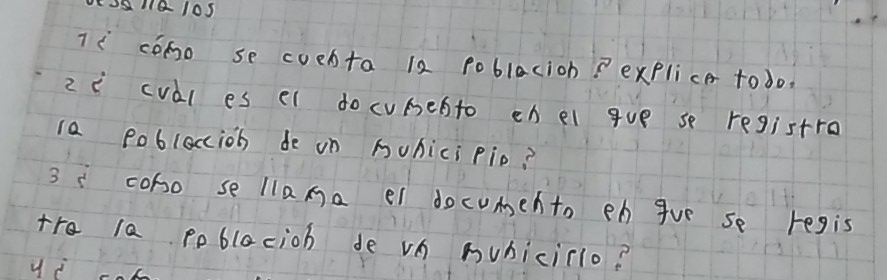 1¿ cómo se cuenta la poblacion? explica todo.
2¿ cuál es el documento en el que se registra
la poblacción de un municipio?
3¿ como se llama el documento en que se regis
tra la poblacion de un municirio?
4¿